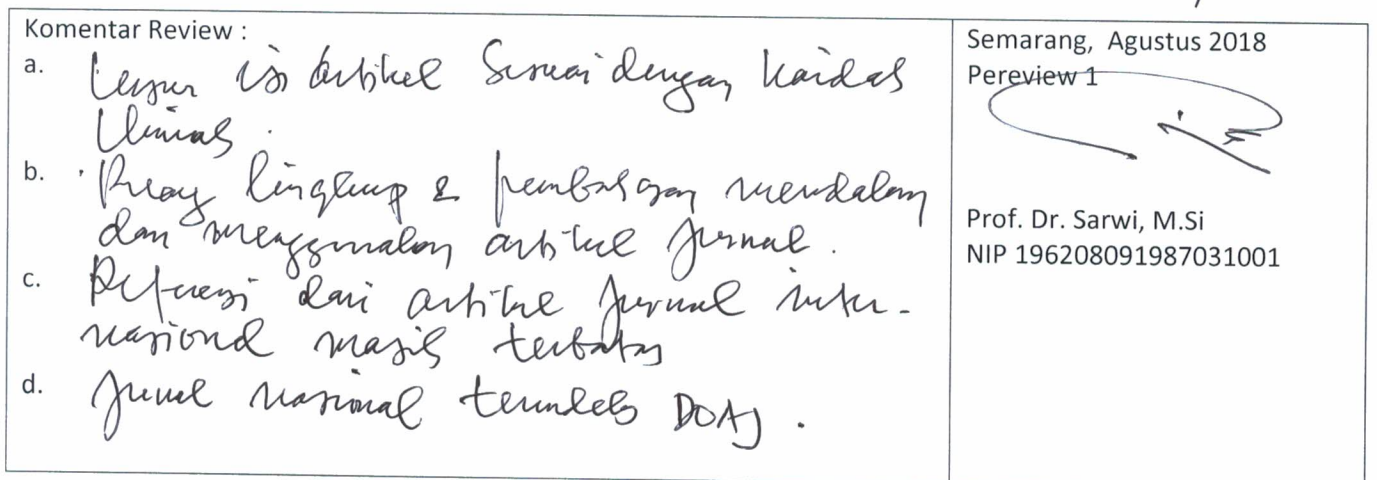 Komentar Review :
a. Unsur isi artikel Sesuai dengan kaidah
Ilmiah.
b. Ruang lingkup & pembahasan mendalam
dan menggunakan artikel jurnal.
c. Referensi dari artikel jurnal inter-
nasional masih terbatas
d. Jurnal nasional terindeks DOAJ.
Semarang, Agustus 2018
Pereview 1
Prof. Dr. Sarwi, M.Si
NIP 196208091987031001